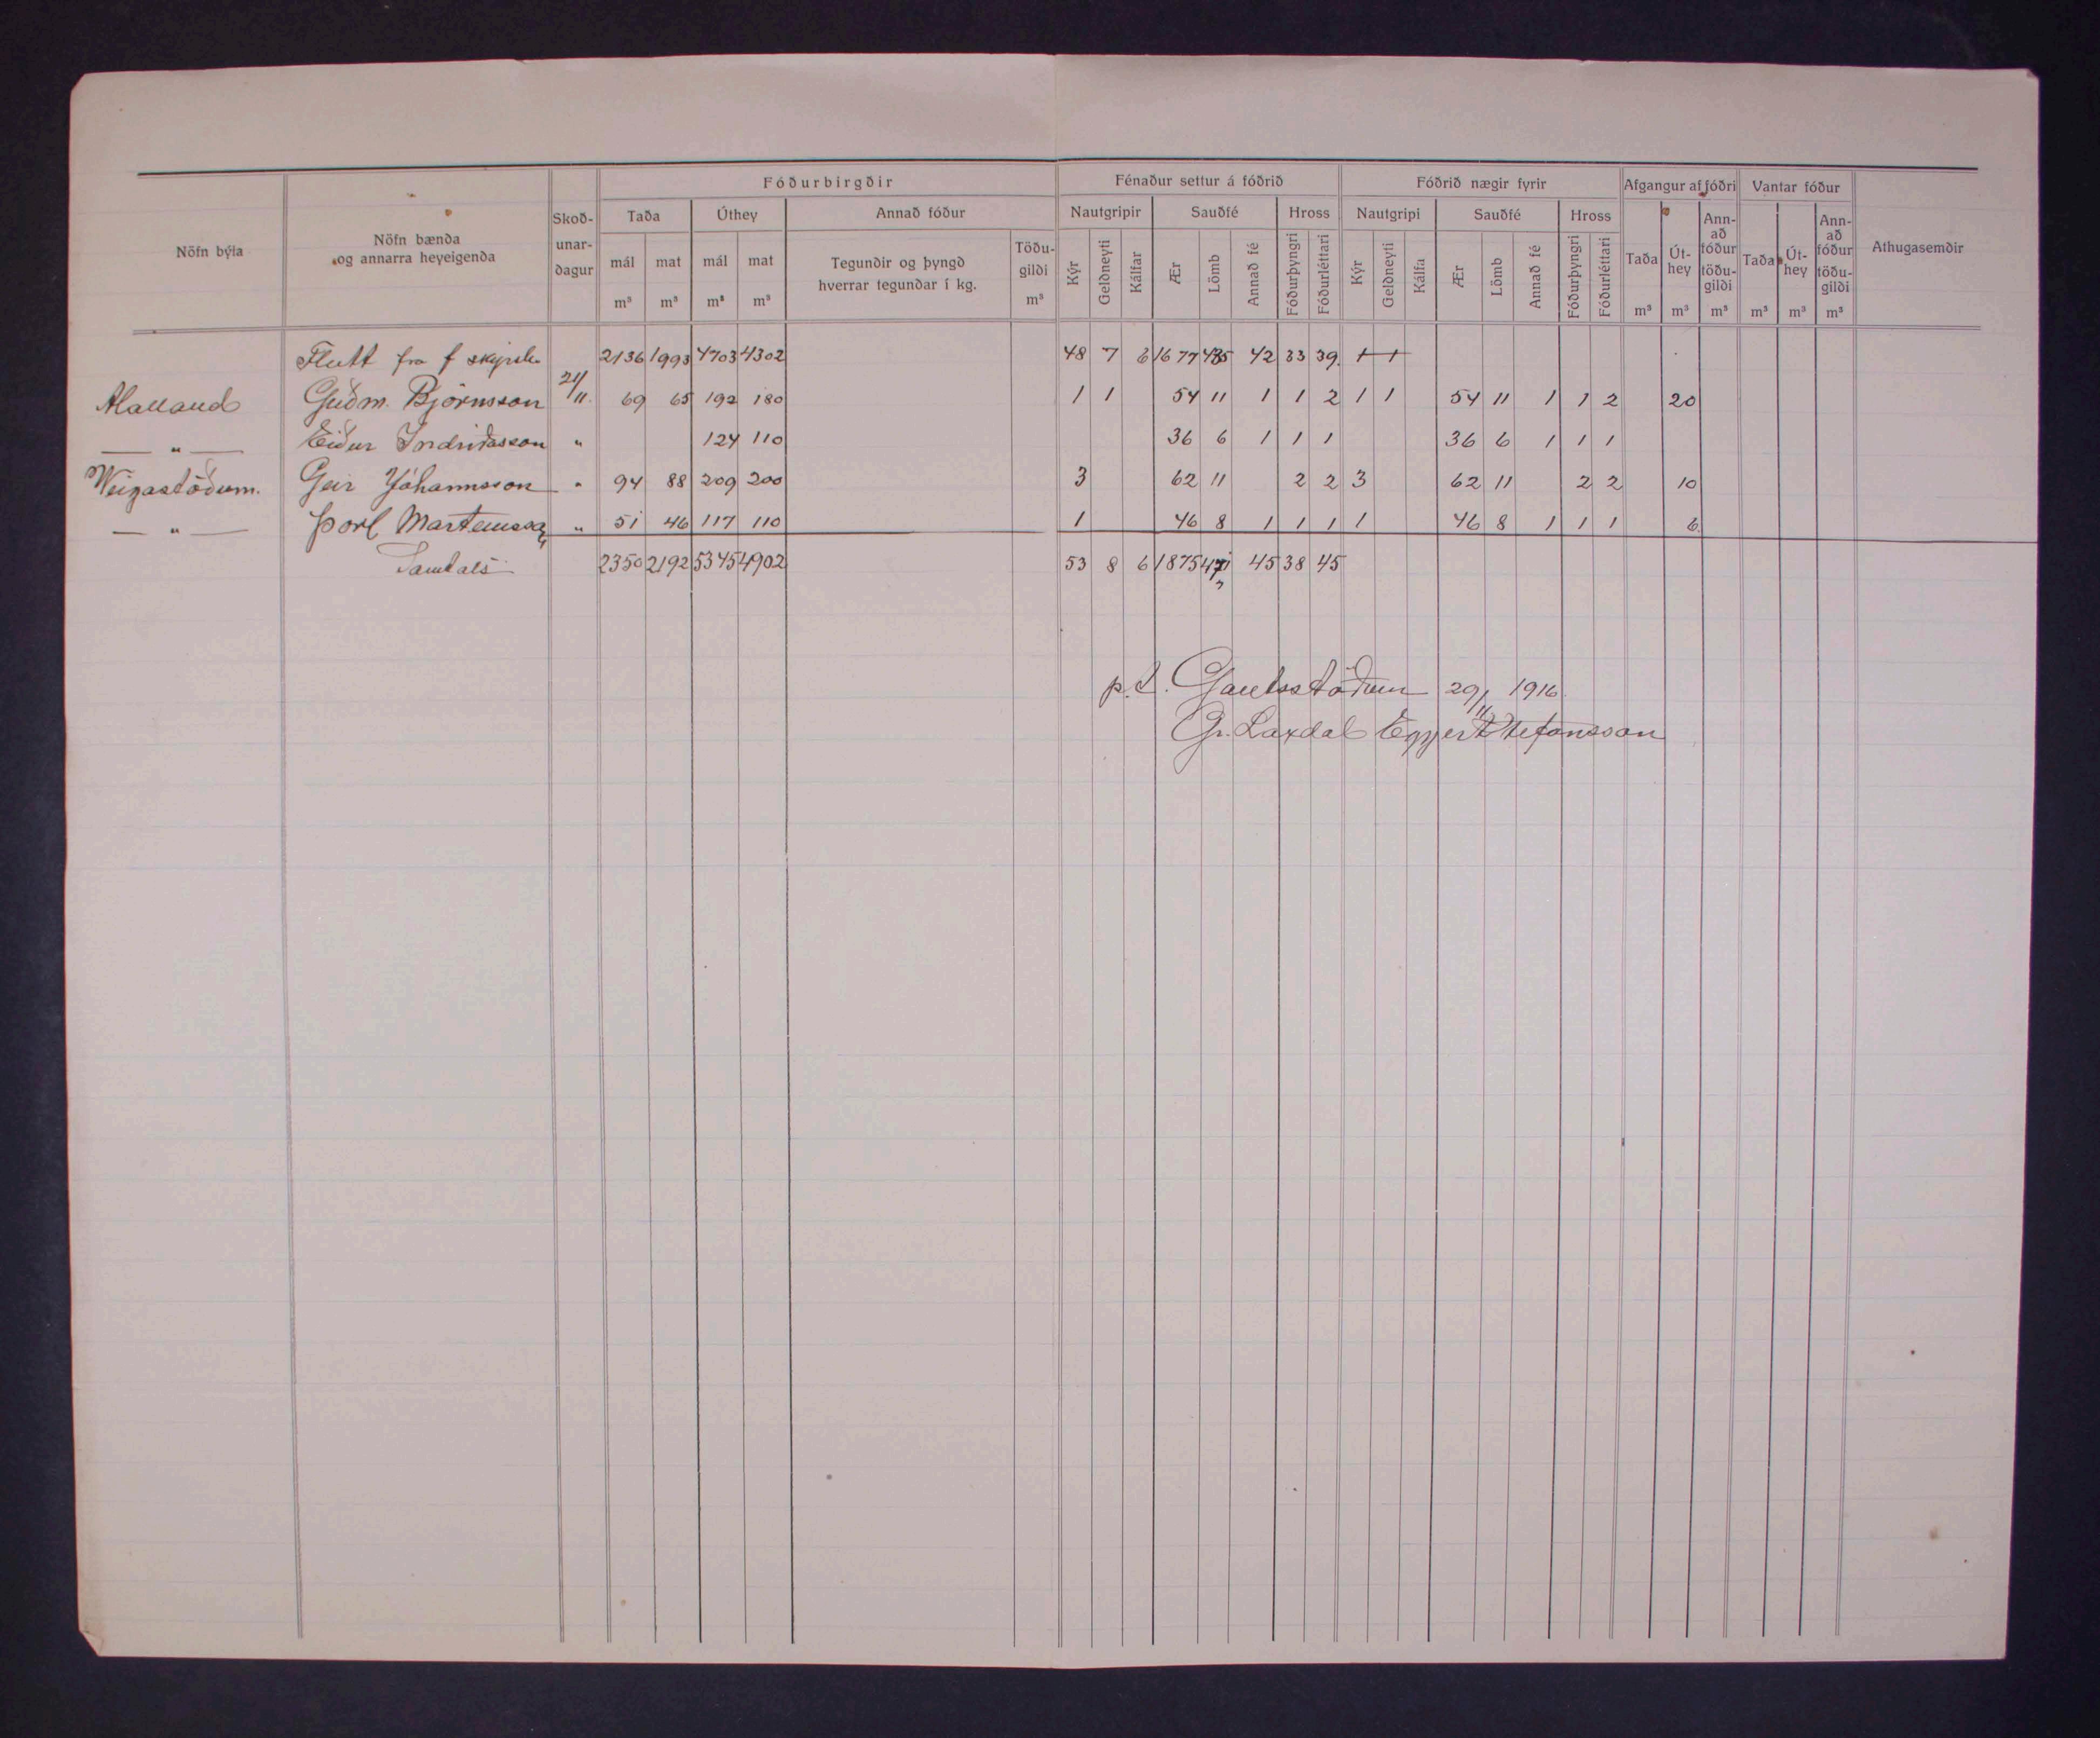 Fóðurbirgðir Fénaður settur á fóðrið Fóðrið nægir fyrir Afgangur af fóðri Vantar fóður
Nöfn býla Nöfn bænda og annarra heyeigenda Skoð-unar-dagur Taða Úthey Annað fóður Nautgripir Sauðfé Hross Nautgripi Sauðfé Hross Taða Út-hey Ann-að fóður töðu-gildi Taða Út-hey Ann-að fóður töðu-gildi Athugasemdir
mál mat mál mat Tegundir og þyngd hverrar tegundar í kg. Töðu-gildi Kýr Geldneyti Kálfar Ær Lömb Annað fé Fóðurþyngri Fóðurléttari Kýr Geldneyti Kálfa Ær Lömb Annað fé Fóðurþyngri Fóðurléttari
m³ m³ m³ m³ m³ m³ m³ m³ m³ m³ m³
Flutt fra f skýrslu 2136 1993 4703 4302 48 7 6 1677 435 42 33 39 1 1
Halland Guðm. Björnsson 21/11. 69 65 192 180 1 1 54 11 1 1 2 1 1 54 11 1 1 2 20
— „ — Eiður Indriðasson „ 124 110 36 6 1 1 1 36 6 1 1 1
Veigastöðum. Geir Jóhannsson „ 94 88 209 200 3 62 11 2 2 3 62 11 2 2 10
— „ — Þorl Marteinsson „ 51 46 117 110 1 46 8 1 1 1 1 46 8 1 1 1 6
Samtals 2350 2192 5345 4902 53 8 6 1875 471 45 38 45
p.t. Gautsstöðum 29/11 1916.
Gr. Laxdal Eggert Stefánsson